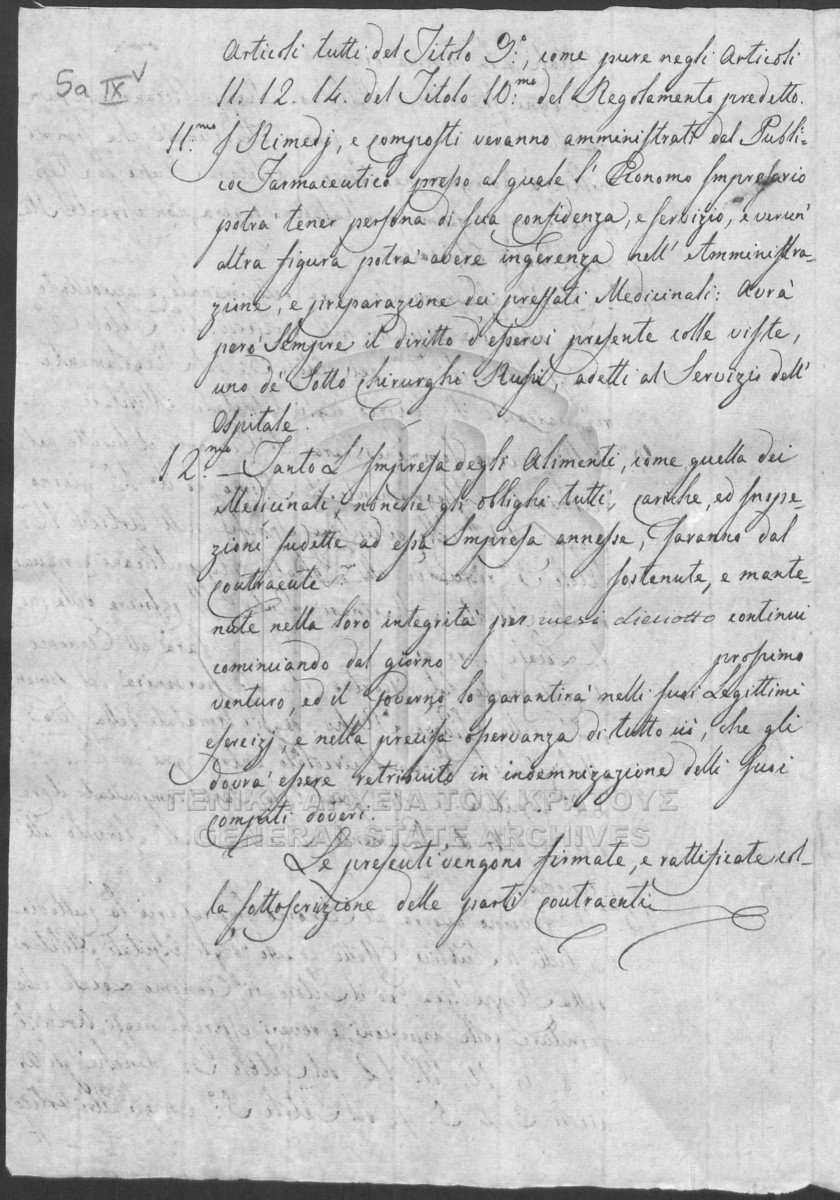 5a IX v
Articoli tutti del Titolo 9.º, come pure negli Articoli
11. 12. 14. del Titolo 10.mo del Regolamento predetto.
11.mo I Rimedj, e composti veranno amministrati dal Publi-
co Farmaceutico presso al quale l'Economo Impresario
potrà tener persona di sua confidenza, e servizio, e verun'
altra figura potrà avere ingerenza nell'Amministra-
zione, e preparazione dei pressati Medicinali: Avrà
però sempre il diritto d'esservi presente colle viste,
uno de' Sotto Chirurghi Russi, adetti al Servizio dell'
Ospitale.
12.mo Tanto L'Impresa degli Alimenti, come quella dei
Medicinali, nonchè gli oblighi tutti, cariche, ed Inspe-
zioni sudette ad essa Impresa annesse, saranno dal
contraente sostenute, e mante-
nute nella loro integrità per mesi dieciotto continui
cominciando dal giorno prossimo
venturo, ed il Governo lo garantirà nelli suoi Legittimi
esercizj, e nella precisa osservanza di tutto ciò, che gli
dovrà essere retribuito in indemnizazione delli suoi
compiti doveri.
ΓΕΝΙΚΑ ΑΡΧΕΙΑ ΤΟΥ ΚΡΑΤΟΥΣ
GENERAL STATE ARCHIVES
Le presenti vengono firmate, e rattificate col-
la sottoscrizione delle parti contraenti.